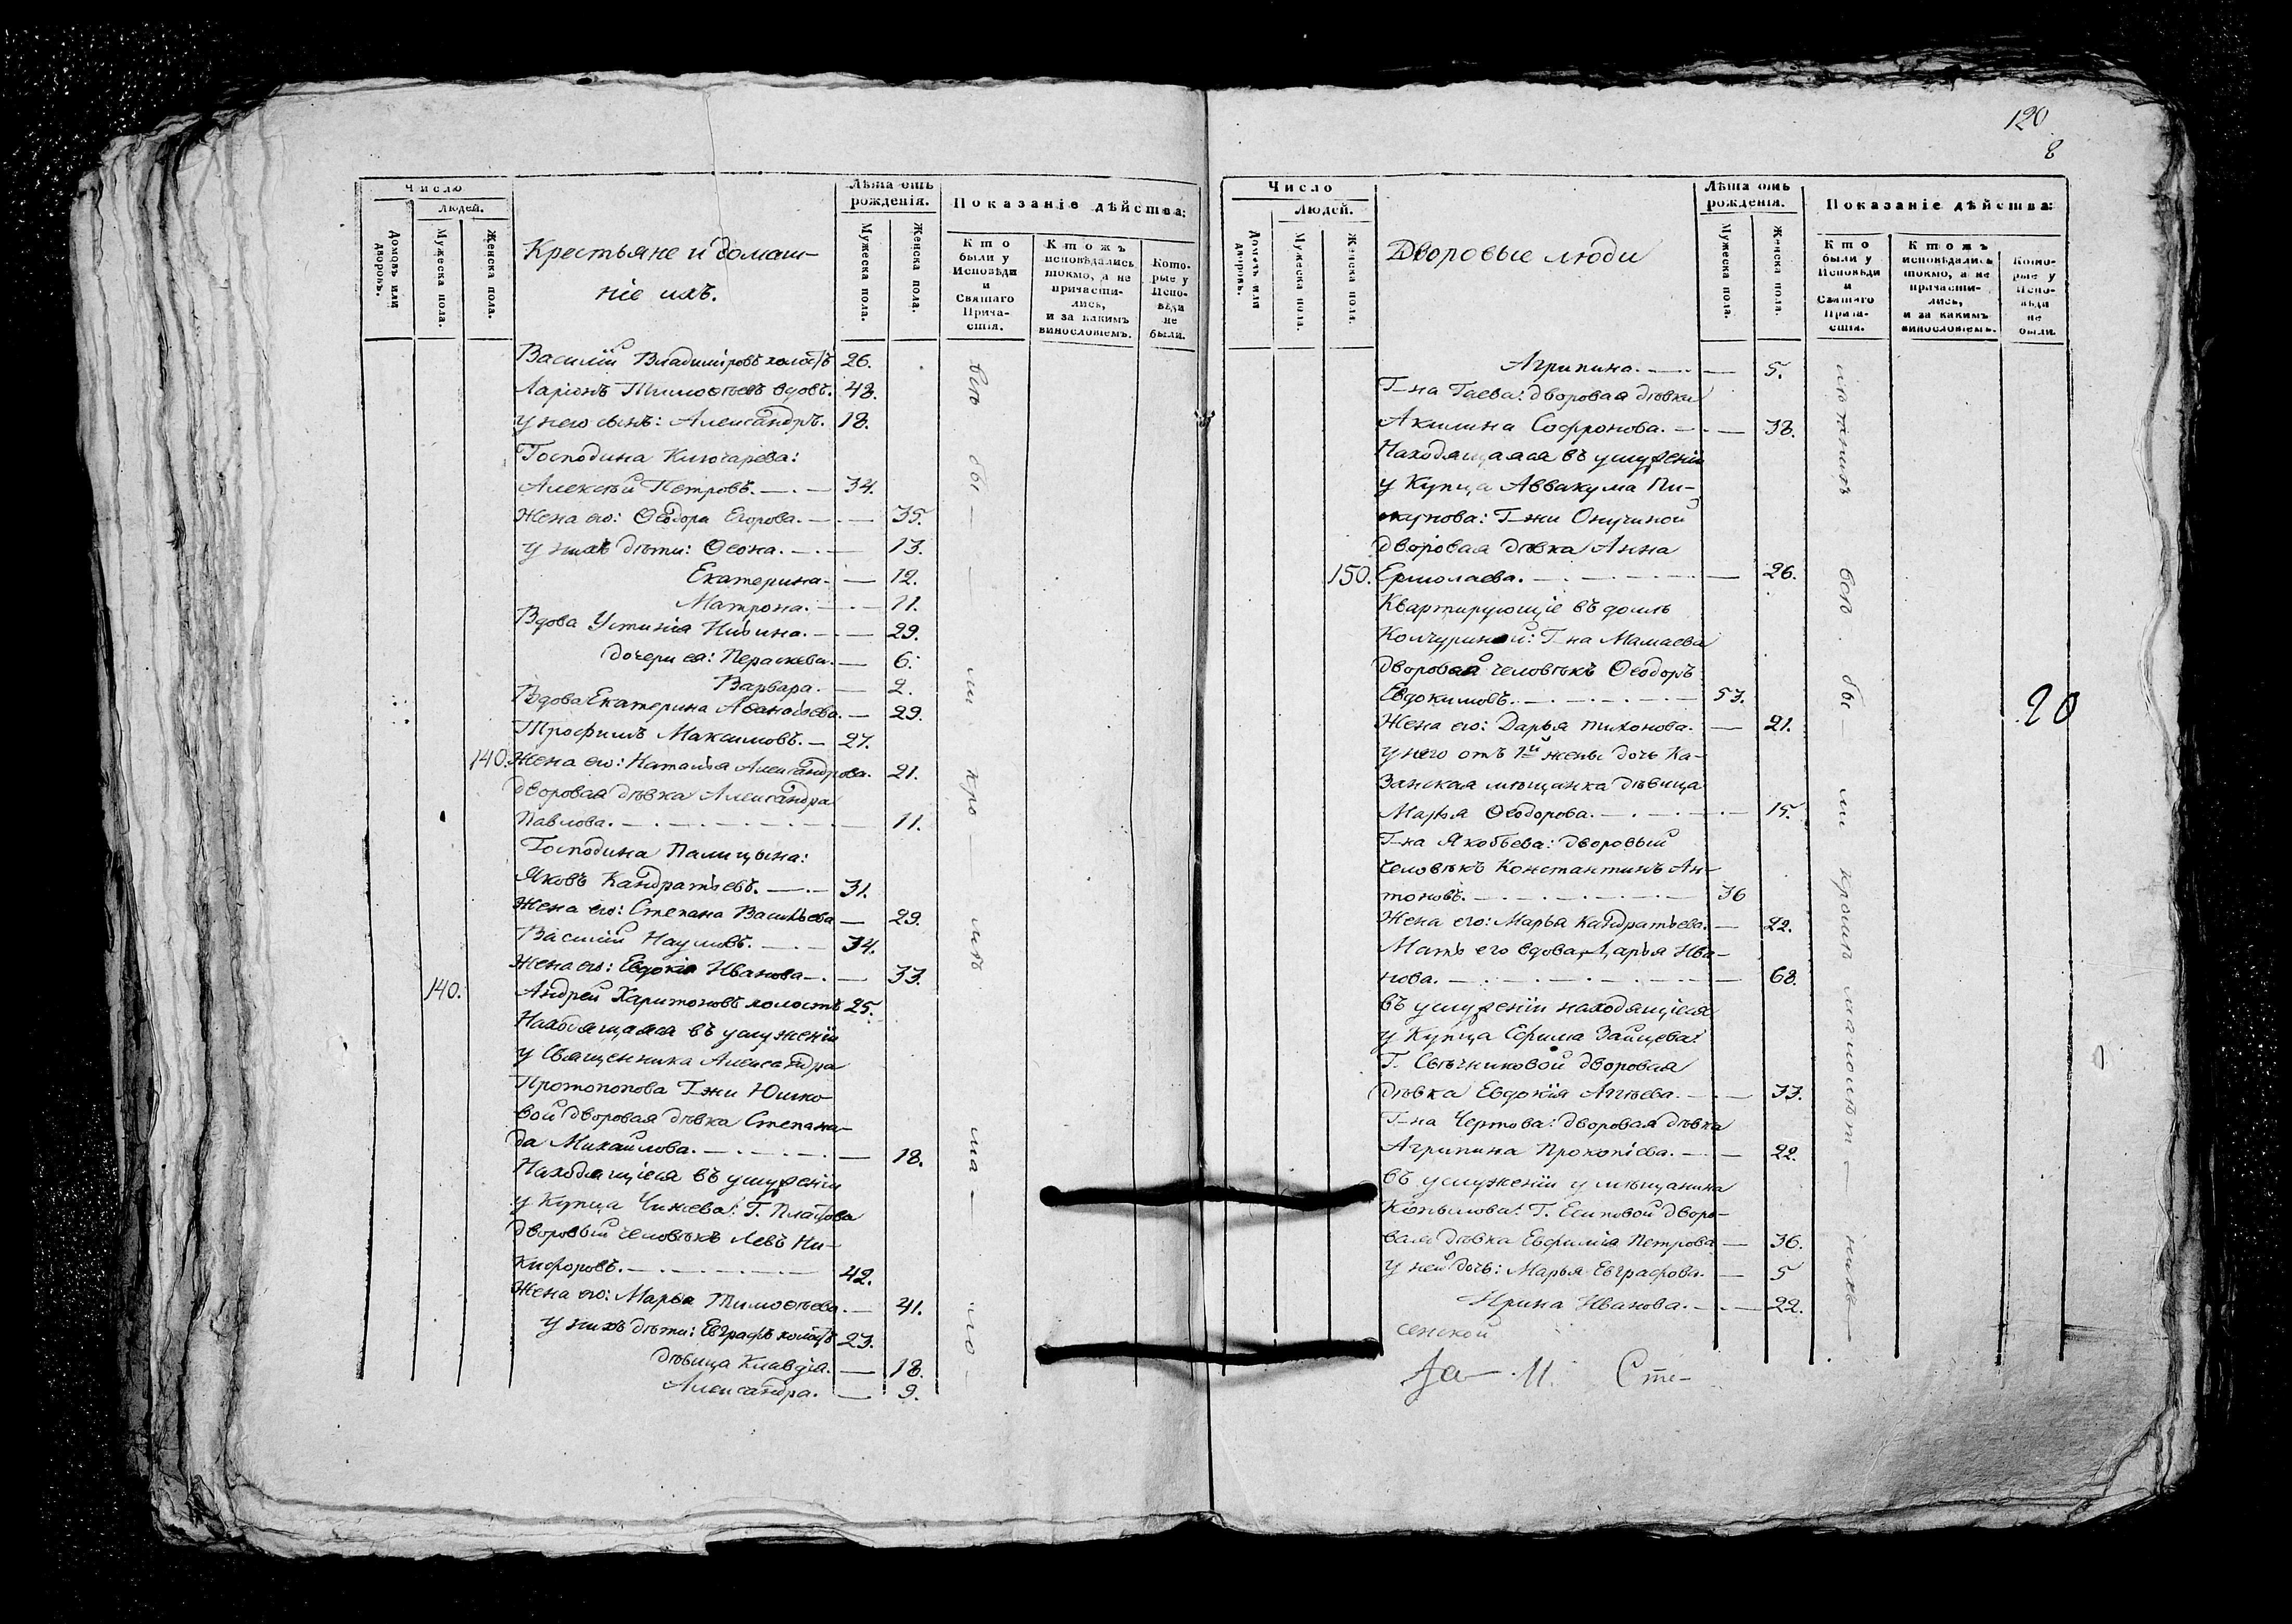 Число
людей.
Домовъ или дворовъ.
Мужеска пола.
Женска пола.
Крестьяне и домаш-
ніе ихъ.
Лѣта отъ рожденія.
Мужеска пола.
Женска пола.
Показаніе дѣйства:
Кто были у Исповѣди и Святаго Прича-стія.
Ктожъ исповѣдались токмо, а не причасти-лись, и за какимъ винословіемъ.
Кото-рые у Испо-вѣди не были.
Василій Владиміровъ холостъ 26.
Ларіонъ Тимоѳѣевъ вдовъ. 48.
у него сынъ: Александръ. 18.
Господина Ключарева:
Алексѣй Петровъ. 34.
Жена его: Ѳеодора Егорова. 35.
у нихъ дѣти: Ѳеона. 13.
Екатерина 12.
Матрона. 11.
Вдова Устинія 29.
дочери ея: Пераскева. 6.
Варвара. 2.
Вдова Екатерина Аѳанасьева. 29.
Трофимъ Максимовъ. 27.
140. Жена его: Наталья Александрова. 21.
дворовая дѣвка Александра
Павлова. 11.
Господина Палицына:
Яковъ Кандратьевъ. 31.
Жена его: Степана Васильева 29.
Василій Наумовъ. 34.
Жена его: Евдокія Иванова 33.
140. Андрей Харитоновъ холостъ 25.
Находящаяся въ услуженіи
у Священника Александра
Протопопова Г-жи Юшко-
вой дворовая дѣвка Степани-
да Михайлова. 18.
Находящіеся въ услуженіи
у Купца Чижева: Г. Платова
дворовый человѣкъ Левъ Ни-
кифоровъ. 42.
Жена его: Марья Тимоѳѣева. 41.
у нихъ дѣти: Евграфъ холостъ 23.
дѣвица Клавдія. 18.
Александра. 9.
всѣ бы — ли кро — мѣ ма — лю —
120
8
Число
Людей.
Домовъ или дворовъ.
Мужеска пола.
Женска пола.
Дворовые люди
Лѣта отъ рожденія.
Мужеска пола.
Женска пола.
Показаніе дѣйства:
Кто были у Исповѣди и Святаго Прича-стія.
Ктожъ исповѣдались токмо, а не причасти-лись, и за какимъ винословіемъ.
Кото-рые у Испо-вѣди не были.
Агрипина. 5.
Г-на Гаева: дворовая дѣвка
Акилина Софронова. 38.
Находящаяся въ услуженіи
у Купца Аввакума Пи-
кунова: Г-жи Онучиной
дворовая дѣвка Анна
150. Ермолаева. 26.
Квартирующіе въ домѣ
Колчуриной: Г-на Мамаева
дворовой человѣкъ Ѳеодоръ
Евдокимовъ. 53.
Жена его: Дарья Тихонова. 21.
у него отъ 1й жены дочь Ка-
занская мѣщанка дѣвица
Марья Ѳеодорова. 15.
Г-на Якобьева: дворовый
человѣкъ Константинъ Ан-
тоновъ. 36
Жена его: Марья Кандратьева. 22.
Мать его вдова Дарья Ива-
нова. 68.
въ услуженіи находящіеся
у Купца Ефима Зайцева:
Г. Свѣчниковой дворовая
дѣвка Евдокія Агѣева. 33.
Г-на Чертова: дворовая дѣвка
Агрипина Прокопіева. 22.
въ услуженіи у мѣщанина
Копылова: Г. Есиповой дворо-
вая дѣвка Евфимія Петрова 36.
у ней дочь: Марья Евграфова. 5
Ирина Иванова. 22.
всѣ бы — ли кромѣ малолѣт — нихъ —
20
сенской